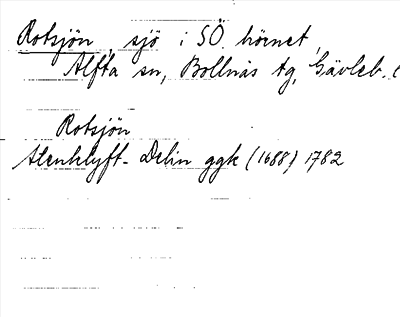 Rotsjön, sjö i SÖ. hörnet,
Alfta sn, Bollnäs tg, Gävleb. l
Rotsjön
Stenklyft-Delin ggk (1688) 1782